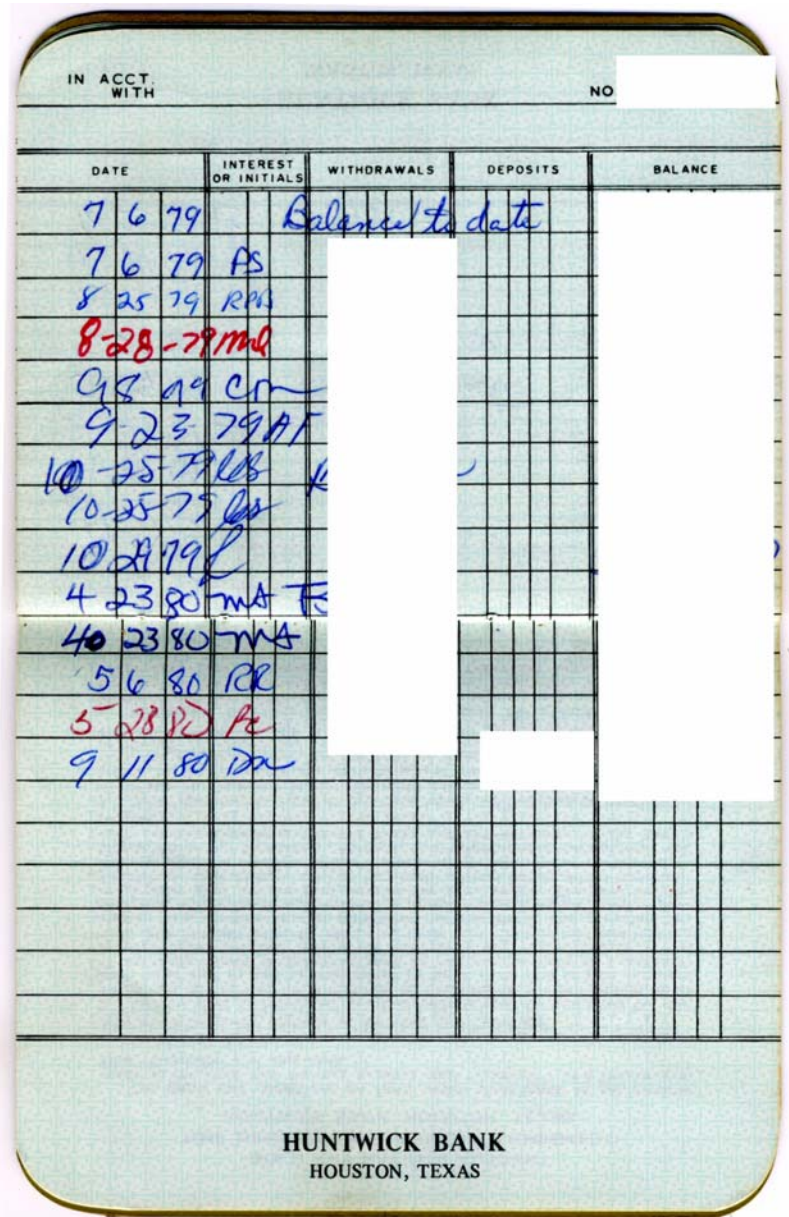 IN ACCT. WITH NO.
DATE INTEREST OR INITIALS WITHDRAWALS DEPOSITS BALANCE
7 6 79 Balance to date
7 6 79 PS
8 25 79 RPB
8-28-79
9 8 79
9-23-79 AF
10-25-79
10-25-79
10 79
4 23 80 MA
40 23 80 MA
5 6 80 RR
5 28 80
9 11 80
HUNTWICK BANK
HOUSTON, TEXAS